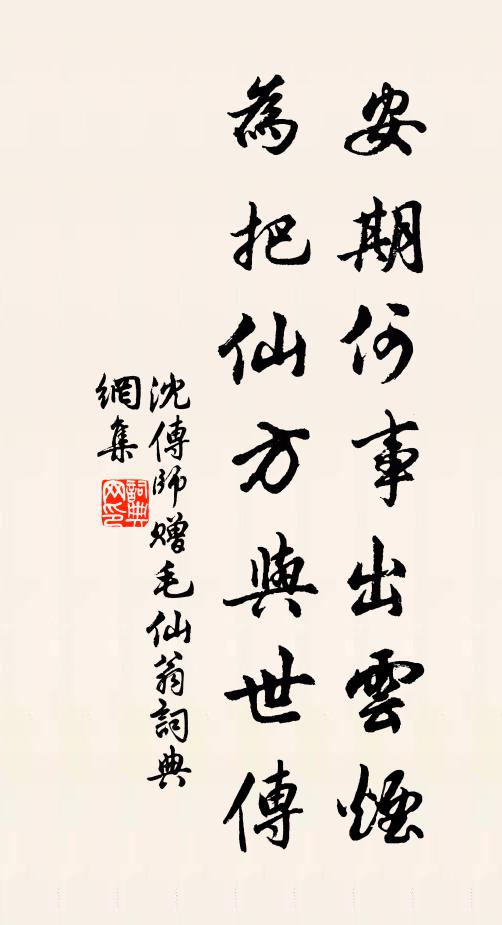 安期何事出雲煙
為把仙方與世傳
沈傳師贈毛仙翁詞典
網集
詞典網印